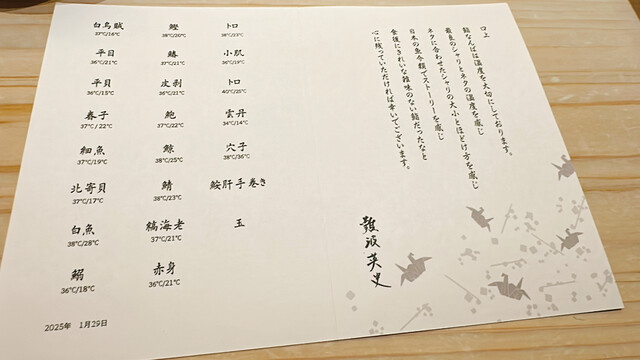 白烏賊
37℃/16℃
平目
36℃/21℃
平貝
36℃/15℃
春子
37℃/22℃
細魚
37℃/19℃
北寄貝
37℃/17℃
白魚
38℃/28℃
鰯
36℃/18℃
鰹
38℃/20℃
鰆
36℃/21℃
皮剥
36℃/21℃
鮑
37℃/22℃
鯨
38℃/25℃
鯖
38℃/23℃
縞海老
37℃/21℃
赤身
36℃/21℃
トロ
38℃/23℃
小肌
36℃/19℃
トロ
40℃/25℃
雲丹
34℃/14℃
穴子
38℃/36℃
鮟肝手巻き
玉
2025年 1月29日
口上
鮨なんばは温度を大切にしております。
最良のシャリとネタの温度を感じ
ネタに合わせたシャリの大小とほどけ方を感じ
日本の魚介類でストーリーを感じ
食後にきれいな雑味のない鮨だったなと
心に残っていただければ幸いでございます。
難波英史